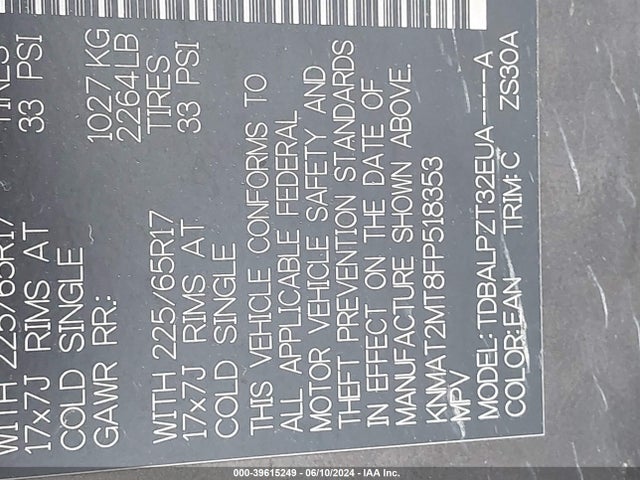 WITH 225/65R17 TIRES
17x7J RIMS AT 33 PSI
COLD SINGLE
GAWR RR.: 1027 KG
2264LB
WITH 225/65R17 TIRES
17x7J RIMS AT 33 PSI
COLD SINGLE
THIS VEHICLE CONFORMS TO
ALL APPLICABLE FEDERAL
MOTOR VEHICLE SAFETY AND
THEFT PREVENTION STANDARDS
IN EFFECT ON THE DATE OF
MANUFACTURE SHOWN ABOVE.
KNMAT2MT8FP518353
MPV
MODEL:TDBALPZT32EUA----A
COLOR:EAN TRIM:C ZS30A
000-39615249 - 06/10/2024 - IAA Inc.